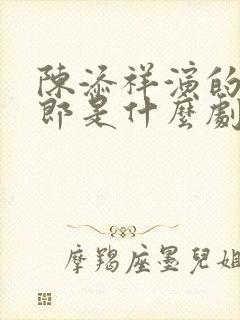 陳添祥演的
郎是什麼劇
摩羯座墨兒姐